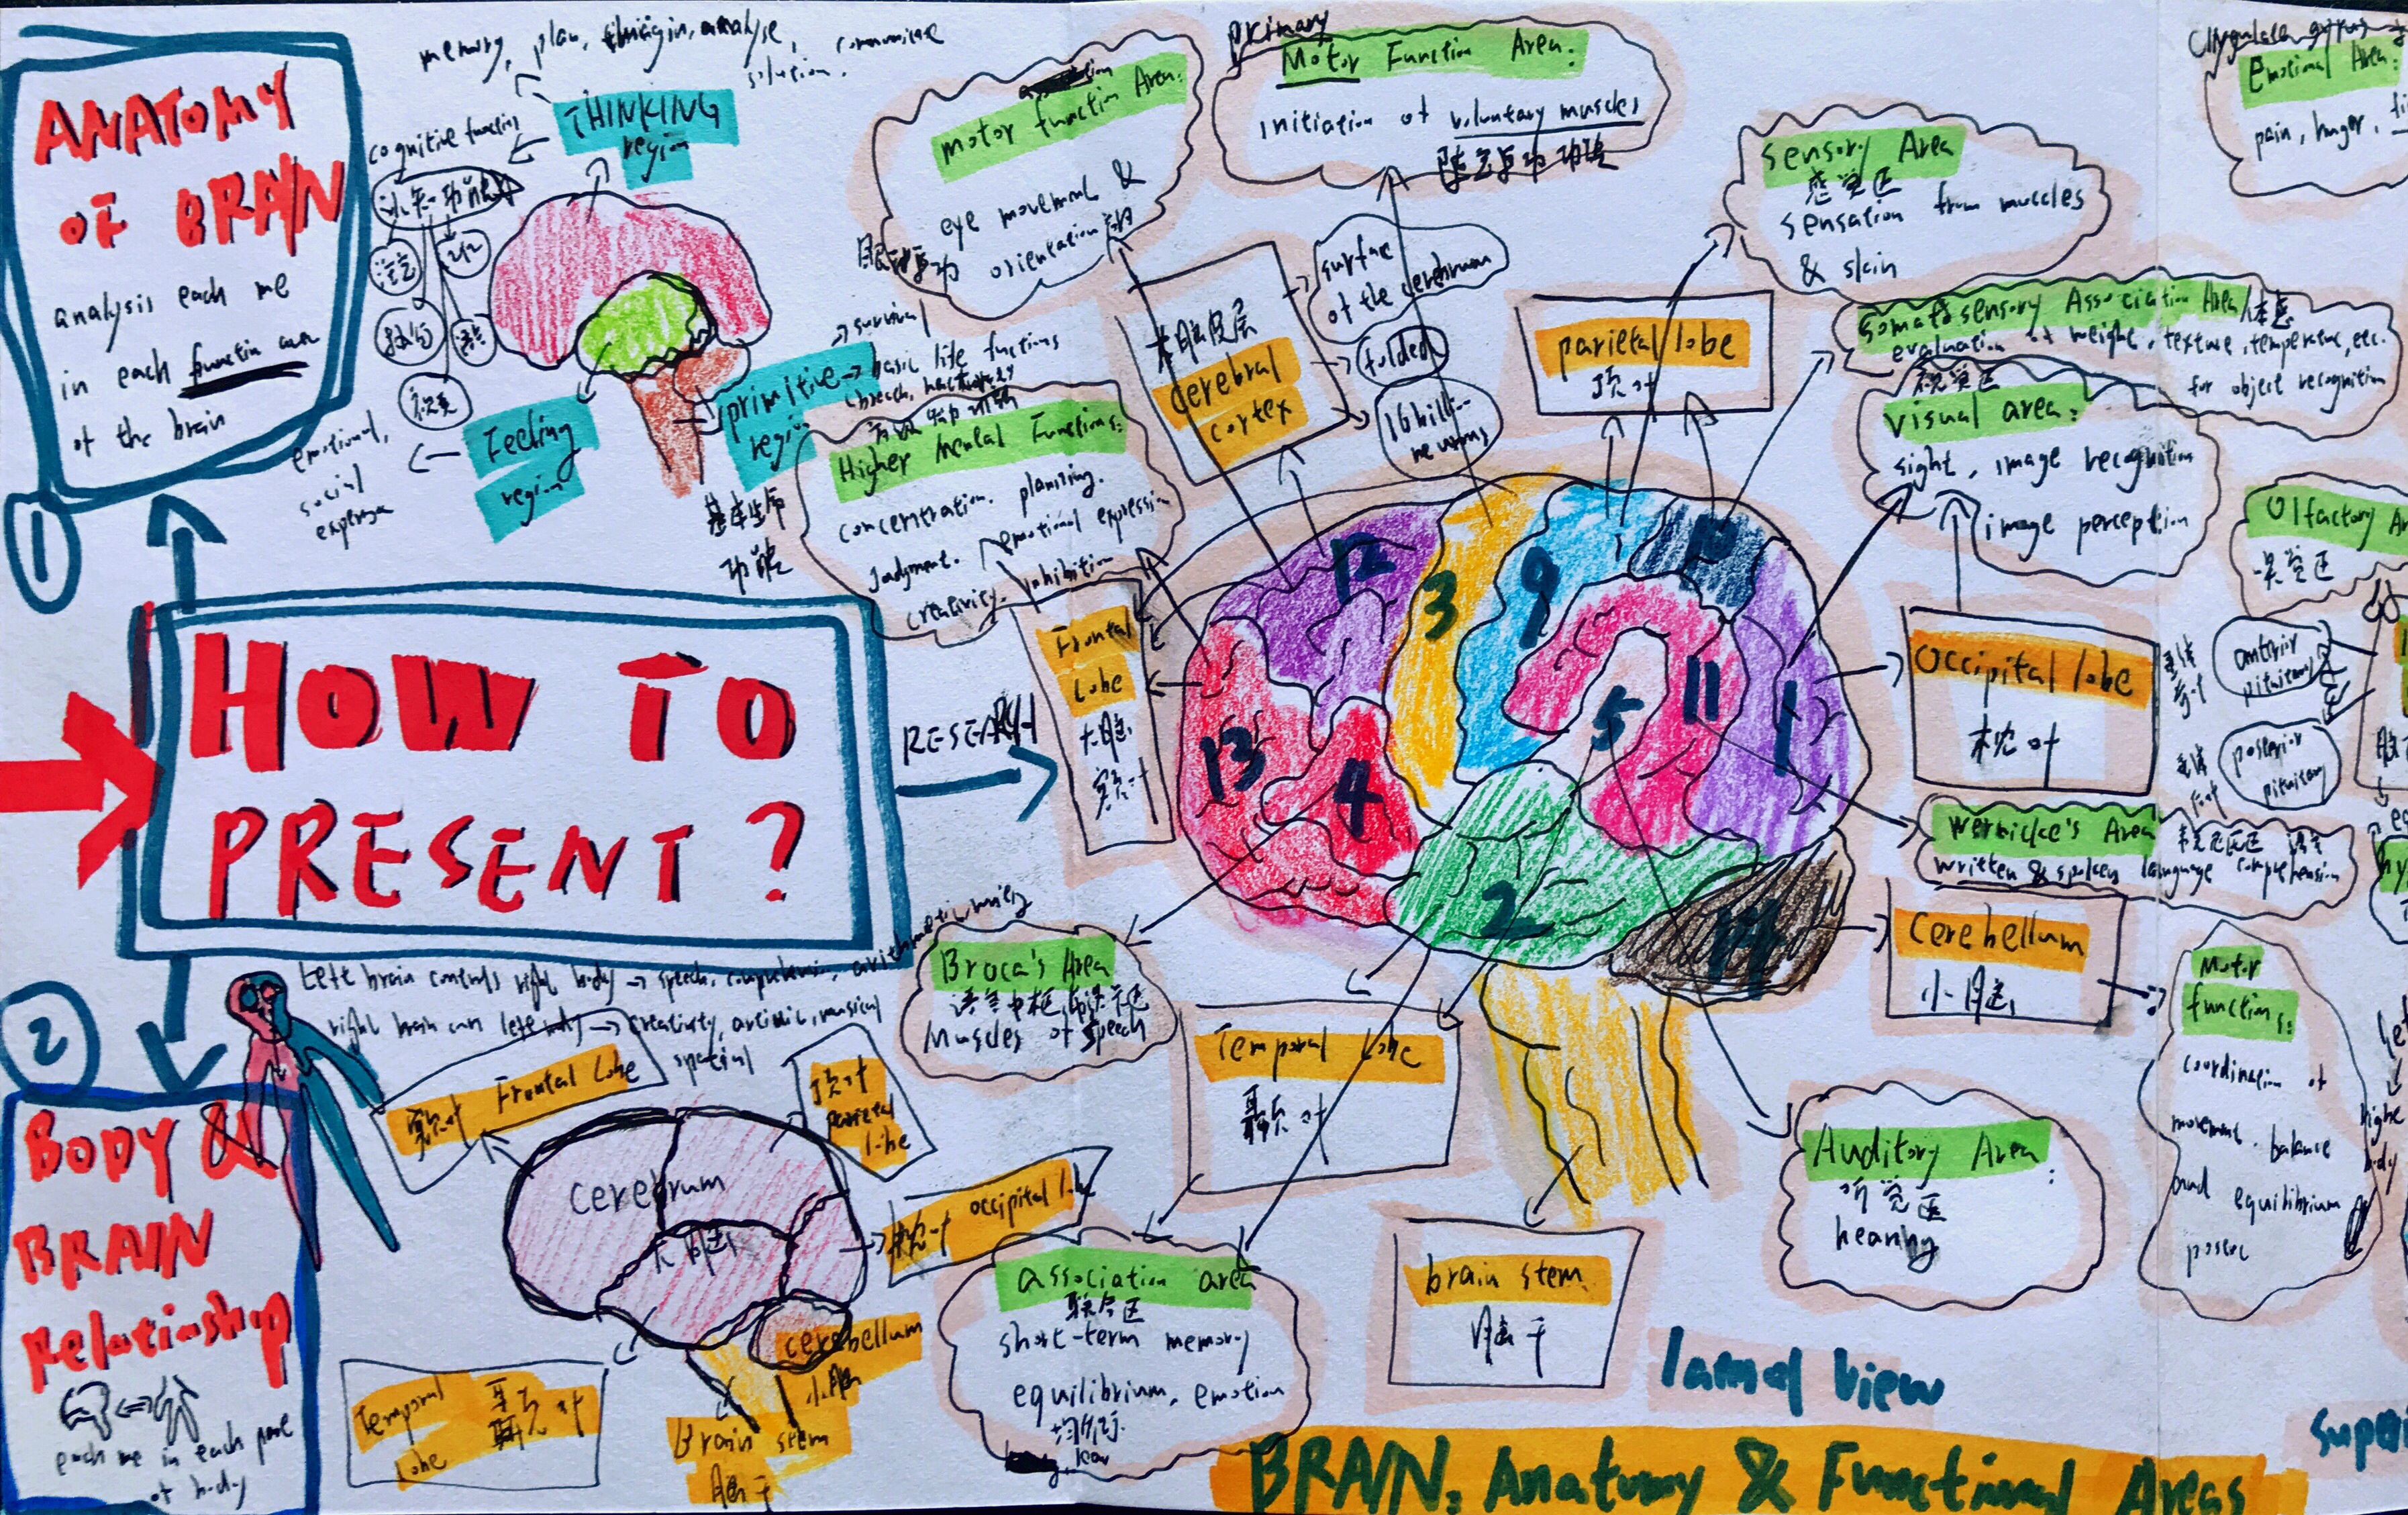 ANATOMY
OF BRAIN
analysis each me
in each function area
of the brain
1
memory, plan, imagin, analyse,
solution, communicate
THINKING
region
cognitive function
认知功能
语言
记忆
视觉
emotional,
social
Feeling
region
survival
primitive
region
basic life functions
基本生命
功能
HOW TO
PRESENT?
RESEARCH
2
BODY &
BRAIN
Relationship
each me in each part
of body
Left brain controls right body → speech, comprehension, arithmetic, writing
right brain con left body → creativity, artistic, musical
spatial
额叶 Frontal Lobe
顶叶
parietal
lobe
cerebrum
大脑
枕叶 occipital lobe
cerebellum
小脑
Temporal
lobe
颞叶
Brain stem
脑干
motor function Area:
eye movement &
orientation
眼球运动
primary
Motor Function Area:
initiation of voluntary muscles
Sensory Area
感觉区
sensation from muscles
& skin
Cingulate gyrus
Emotional Area:
pain, hunger,
大脑皮层
cerebral
cortex
surface
of the cerebrum
folded
16 billi-
neurons
parietal lobe
顶叶
Somatosensory Association Area/体感
evaluation of weight, texture, temperature, etc.
for object recognition
视觉区
visual area:
sight, image recognition
image perception
Higher Mental Functions:
concentration, planning,
judgment, emotional expression
creativity, inhibition
Frontal
Lobe
大脑
额叶
Olfactory Ar
嗅觉区
Occipital lobe
枕叶
anterior
pituitary
垂体
前叶
posterior
pituitary
垂体
后叶
12
3
9
10
13
4
5
11
1
2
14
Wernicke's Area
韦尼克区 语言
written & spoken language comprehension
cerebellum
小脑
Motor
functions:
coordination of
movement, balance
and equilibrium
Broca's Area
Muscles of speech
Temporal Lobe
颞叶
association area
联合区
short-term memory
equilibrium, emotion
均衡
brain stem
脑干
Auditory Area:
听觉区
hearing
lateral view
BRAIN: Anatomy & Functional Areas